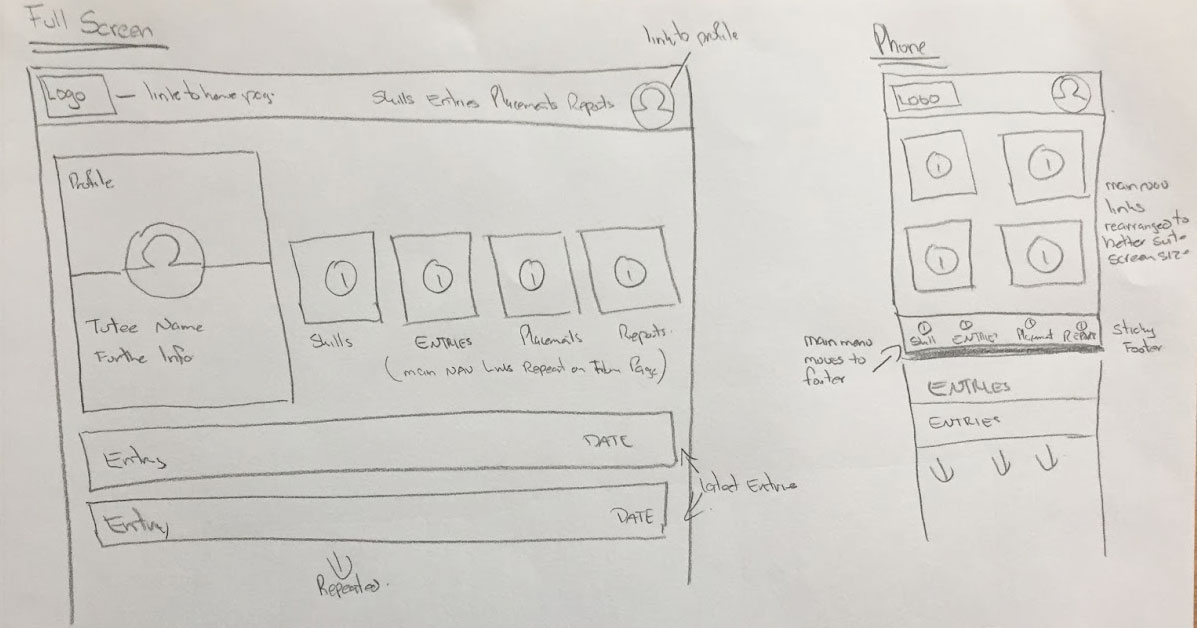 Full Screen
link to profile
Logo — link to home page
Skills Entries Placements Reports
Profile
Tutee Name
Further Info
Skills
ENTRIES
Placements
Reports.
(main NAV Links Repeat on Page)
Entry
DATE
latest Entries
Entry
DATE
Repeated.
Phone
LOGO
main nav
links
rearranged to
better suit
screen size
main menu
moves to
footer
Skill ENTRIES Report
Sticky
Footer
ENTRIES
ENTRIES